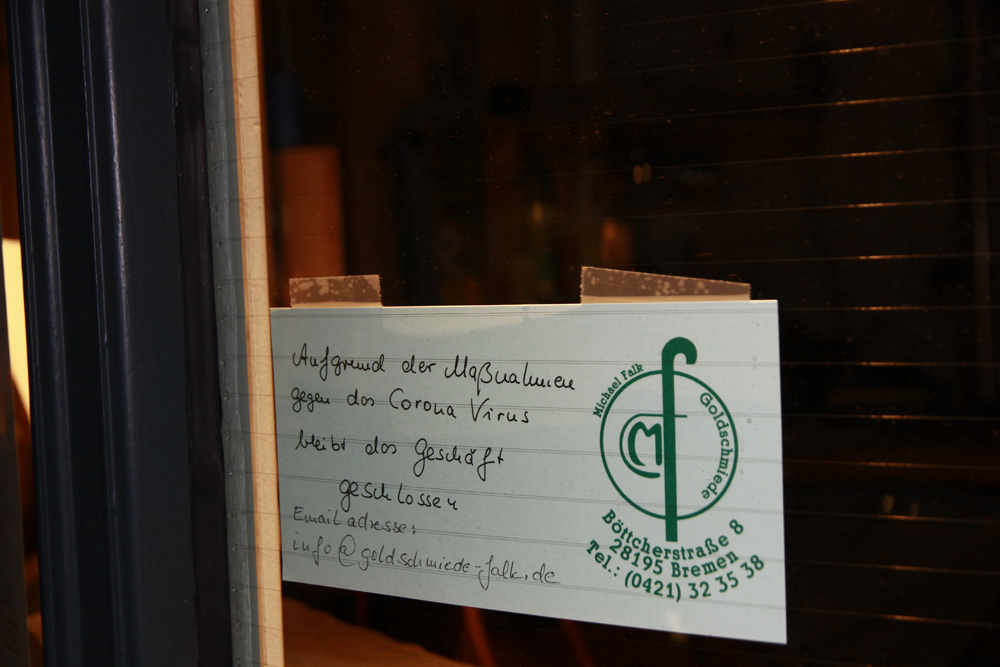 Aufgrund der Maßnahmen
gegen das Corona Virus
bleibt das Geschäft
geschlossen
Email adresse:
info@goldschmiede-falk.de
Michael Falk
Goldschmiede
Böttcherstraße 8
28195 Bremen
Tel.: (0421) 32 35 38